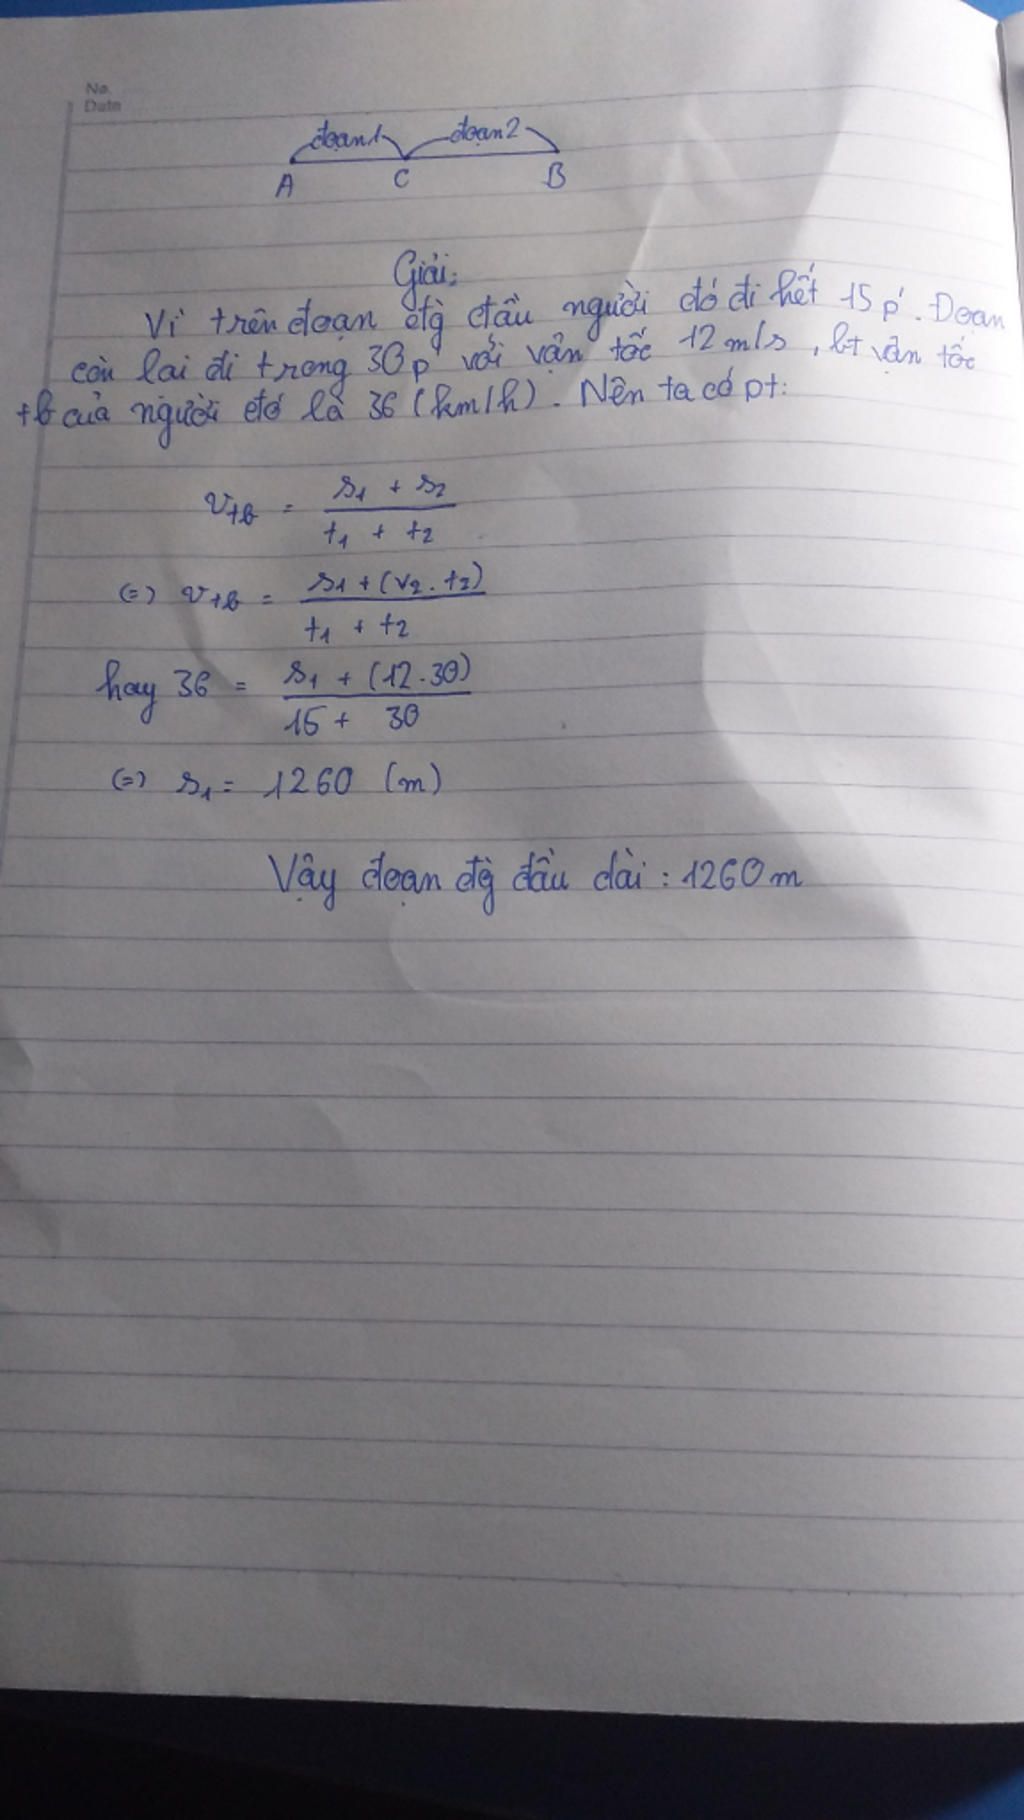 No.
Date
đoạn1 đoạn2
A C B
Giải:
Vì trên đoạn đg đầu người đó đi hết 15 p'. Đoạn
còn lại đi trong 30p' với vận tốc 12 m/s, bt vận tốc
tb của người đó là 36 (km/h). Nên ta có pt:
vtb = s1 + s2 / t1 + t2
(=) vtb = s1 + (v2 . t2) / t1 + t2
hay 36 = s1 + (12.30) / 15 + 30
(=) s1 = 1260 (m)
Vậy đoạn đg đầu dài : 1260 m